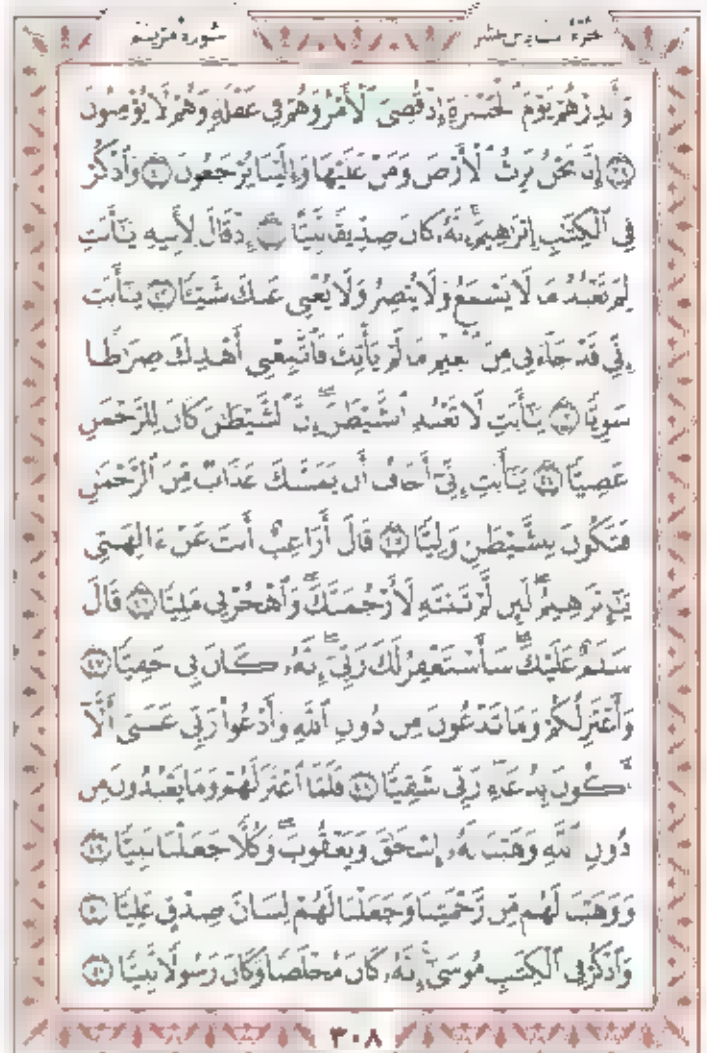 سورة مريم
الجزء السادس عشر
وَأَنذِرْهُمْ يَوْمَ ٱلْحَسْرَةِ إِذْ قُضِىَ ٱلْأَمْرُ وَهُمْ فِى غَفْلَةٍ وَهُمْ لَا يُؤْمِنُونَ
٣٩ إِنَّا نَحْنُ نَرِثُ ٱلْأَرْضَ وَمَنْ عَلَيْهَا وَإِلَيْنَا يُرْجَعُونَ ٤٠ وَٱذْكُرْ
فِى ٱلْكِتَٰبِ إِبْرَٰهِيمَ إِنَّهُۥ كَانَ صِدِّيقًا نَّبِيًّا ٤١ إِذْ قَالَ لِأَبِيهِ يَٰٓأَبَتِ
لِمَ تَعْبُدُ مَا لَا يَسْمَعُ وَلَا يُبْصِرُ وَلَا يُغْنِى عَنكَ شَيْـًٔا ٤٢ يَٰٓأَبَتِ
إِنِّى قَدْ جَآءَنِى مِنَ ٱلْعِلْمِ مَا لَمْ يَأْتِكَ فَٱتَّبِعْنِىٓ أَهْدِكَ صِرَٰطًا
سَوِيًّا ٤٣ يَٰٓأَبَتِ لَا تَعْبُدِ ٱلشَّيْطَٰنَ إِنَّ ٱلشَّيْطَٰنَ كَانَ لِلرَّحْمَٰنِ
عَصِيًّا ٤٤ يَٰٓأَبَتِ إِنِّىٓ أَخَافُ أَن يَمَسَّكَ عَذَابٌ مِّنَ ٱلرَّحْمَٰنِ
فَتَكُونَ لِلشَّيْطَٰنِ وَلِيًّا ٤٥ قَالَ أَرَاغِبٌ أَنتَ عَنْ ءَالِهَتِى
يَٰٓإِبْرَٰهِيمُ لَئِن لَّمْ تَنتَهِ لَأَرْجُمَنَّكَ وَٱهْجُرْنِى مَلِيًّا ٤٦ قَالَ
سَلَٰمٌ عَلَيْكَ سَأَسْتَغْفِرُ لَكَ رَبِّىٓ إِنَّهُۥ كَانَ بِى حَفِيًّا ٤٧
وَأَعْتَزِلُكُمْ وَمَا تَدْعُونَ مِن دُونِ ٱللَّهِ وَأَدْعُوا۟ رَبِّى عَسَىٰٓ أَلَّآ
أَكُونَ بِدُعَآءِ رَبِّى شَقِيًّا ٤٨ فَلَمَّا ٱعْتَزَلَهُمْ وَمَا يَعْبُدُونَ مِن
دُونِ ٱللَّهِ وَهَبْنَا لَهُۥٓ إِسْحَٰقَ وَيَعْقُوبَ وَكُلًّا جَعَلْنَا نَبِيًّا ٤٩
وَوَهَبْنَا لَهُم مِّن رَّحْمَتِنَا وَجَعَلْنَا لَهُمْ لِسَانَ صِدْقٍ عَلِيًّا ٥٠
وَٱذْكُرْ فِى ٱلْكِتَٰبِ مُوسَىٰٓ إِنَّهُۥ كَانَ مُخْلَصًا وَكَانَ رَسُولًا نَّبِيًّا ٥١
٣٠٨